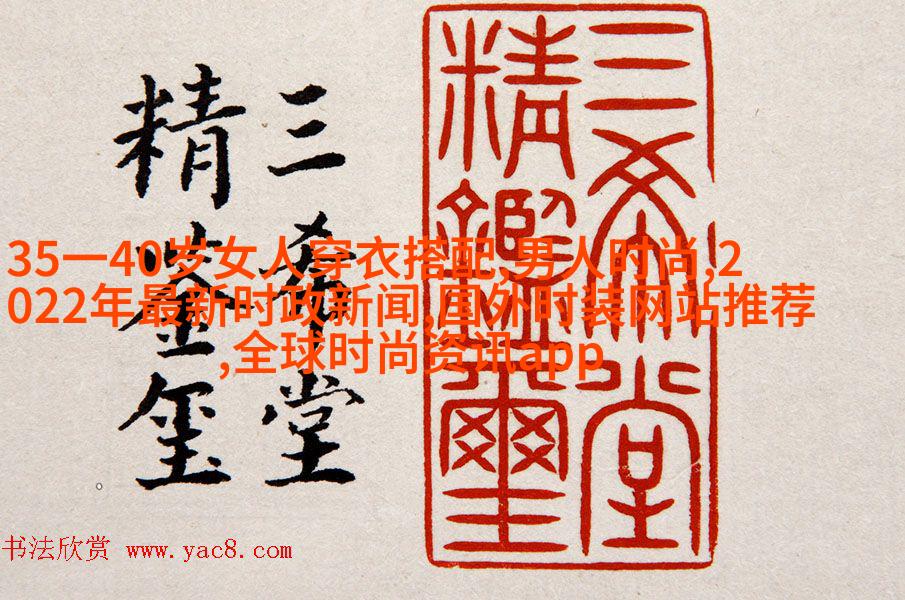 三希堂
精鑑璽
三希堂
精鉴玺
35一40岁女人穿衣搭配,男人时尚,2
022年最新时政新闻,国外时装网站推荐
,全球时尚资讯app
书法欣赏 www.yac8.com